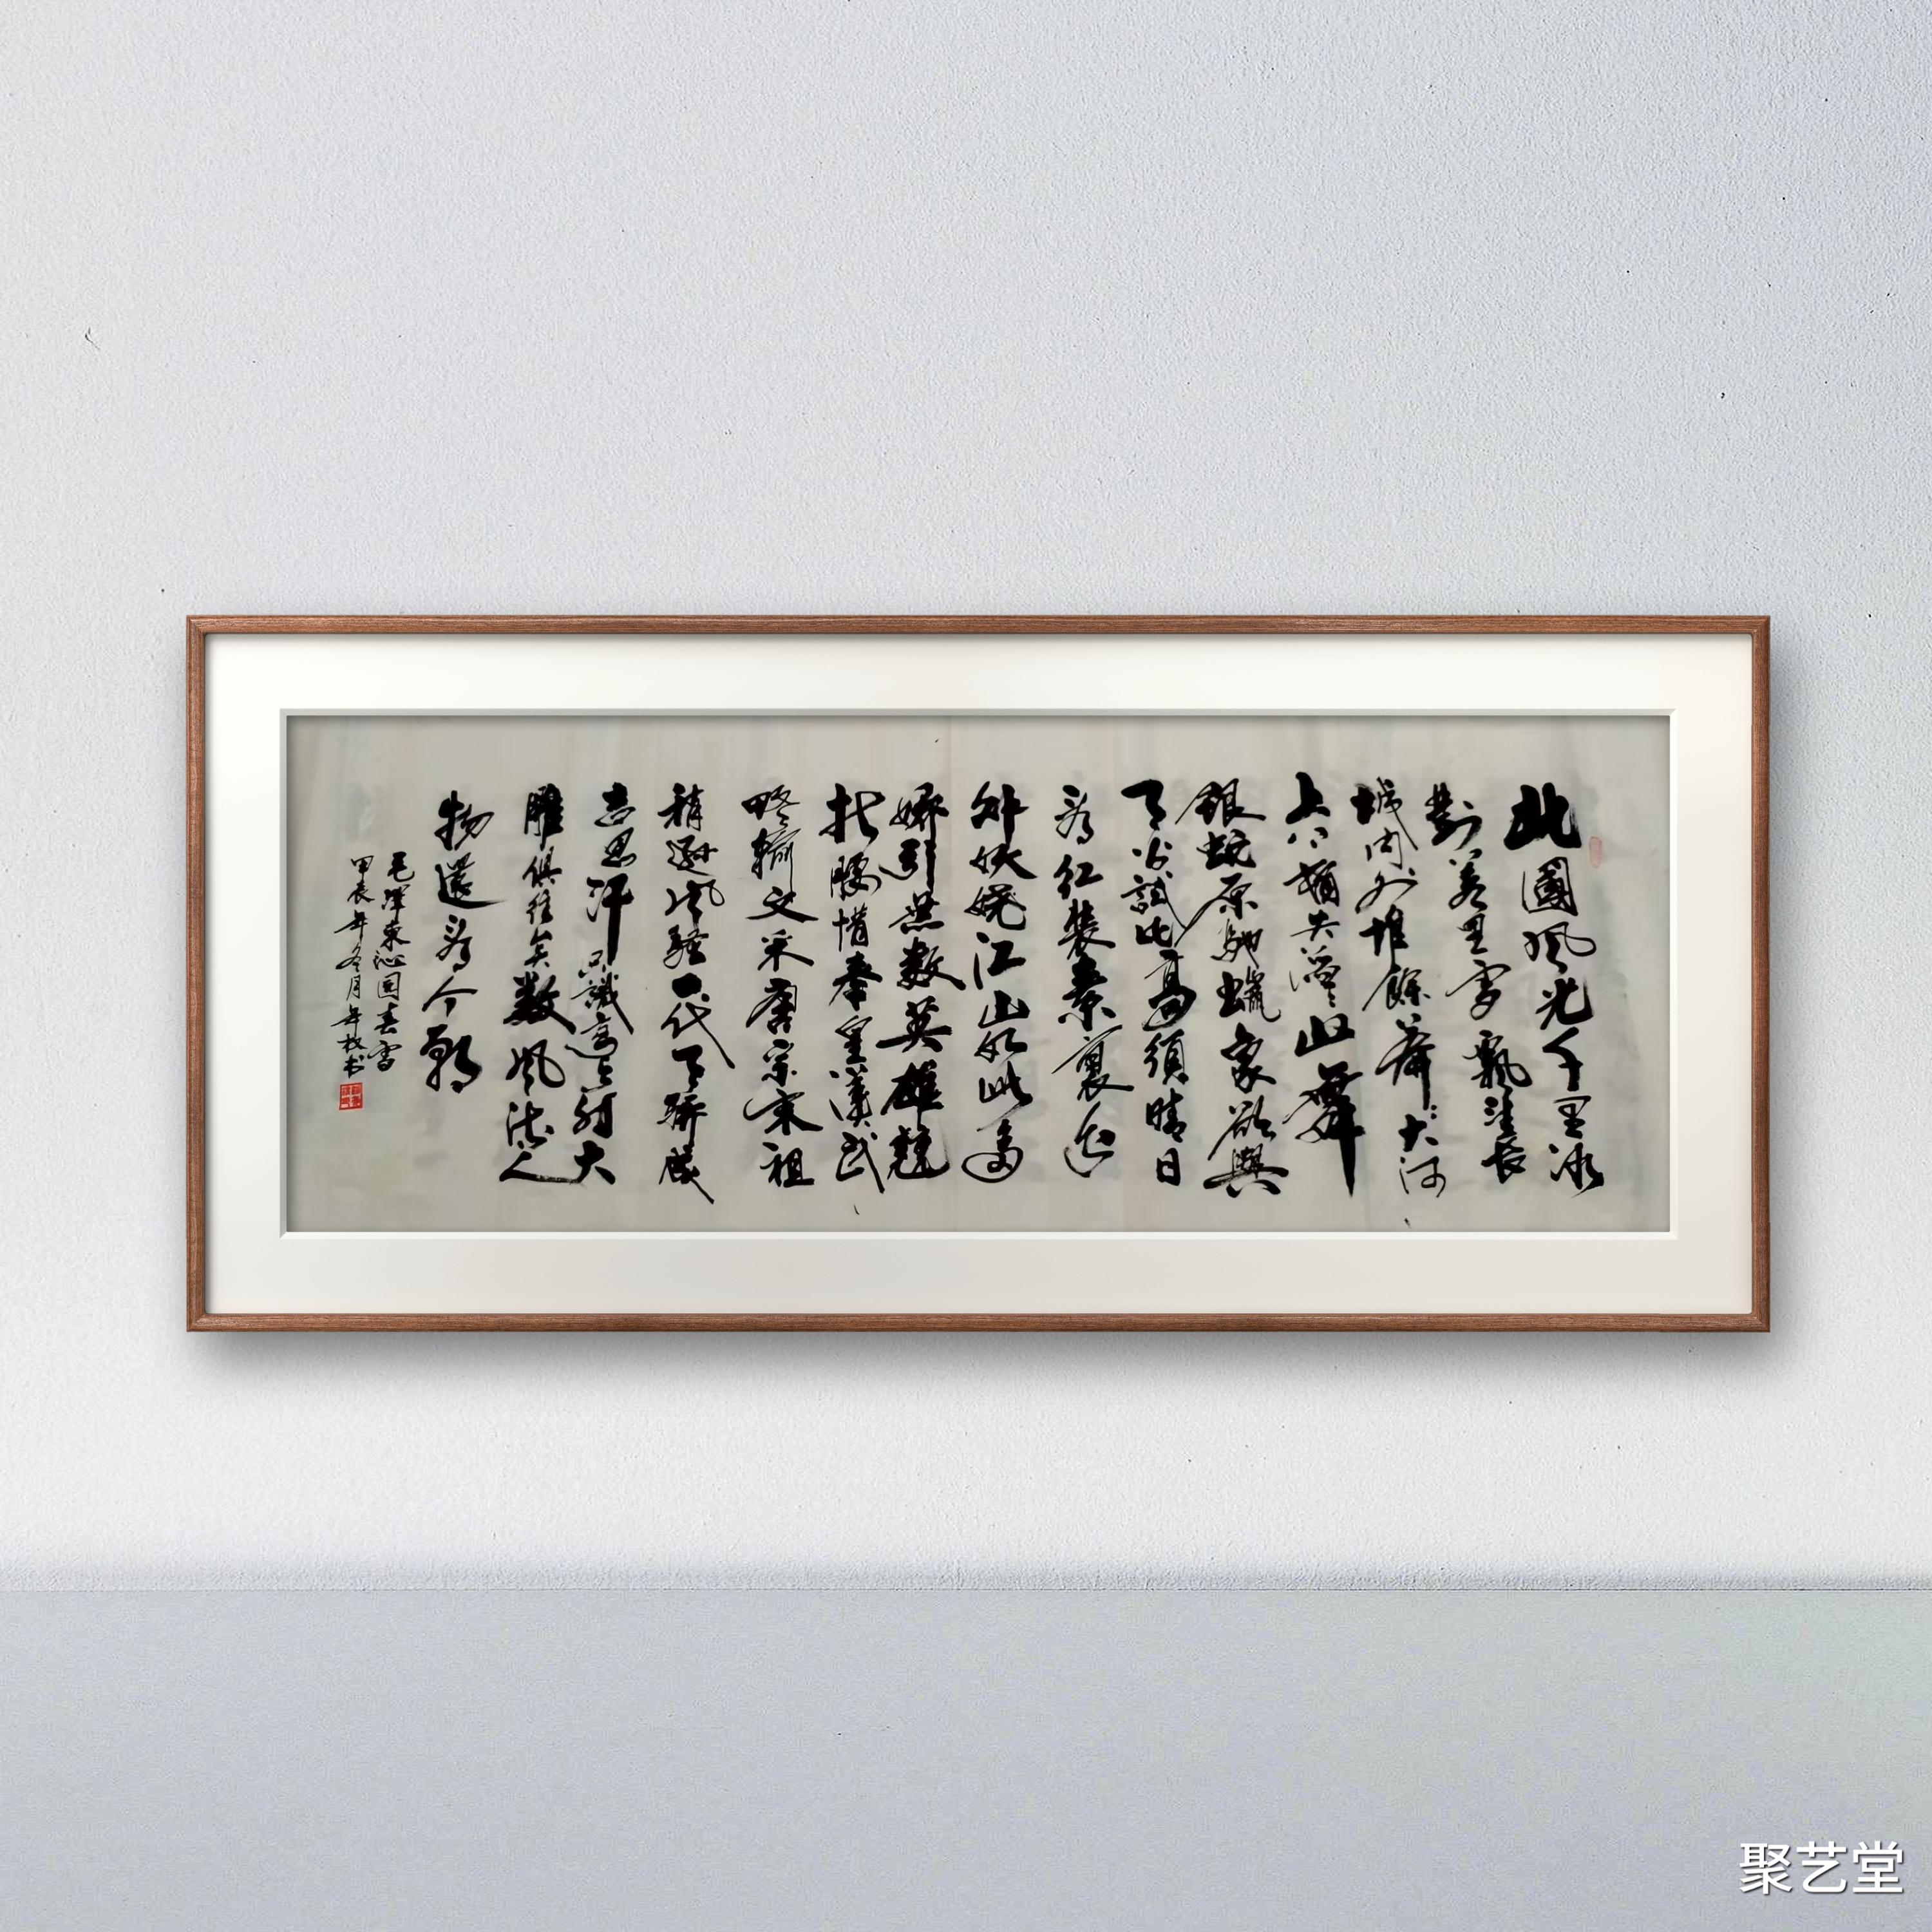 北國風光千里冰
封萬里雪飄望長
城内外惟餘莽々大河
上下頓失滔々山舞
銀蛇原馳蠟象欲與
天公試比高須晴日
看红装素裹分
外妖嬈江山如此多
嬌引無數英雄競
折腰惜秦皇漢武
略輸文采唐宗宋祖
稍遜風騷一代天驕成
吉思汗只識彎弓射大
雕俱往矣數風流人
物還看今朝
毛澤東沁園春雪
甲辰年冬月书
聚艺堂